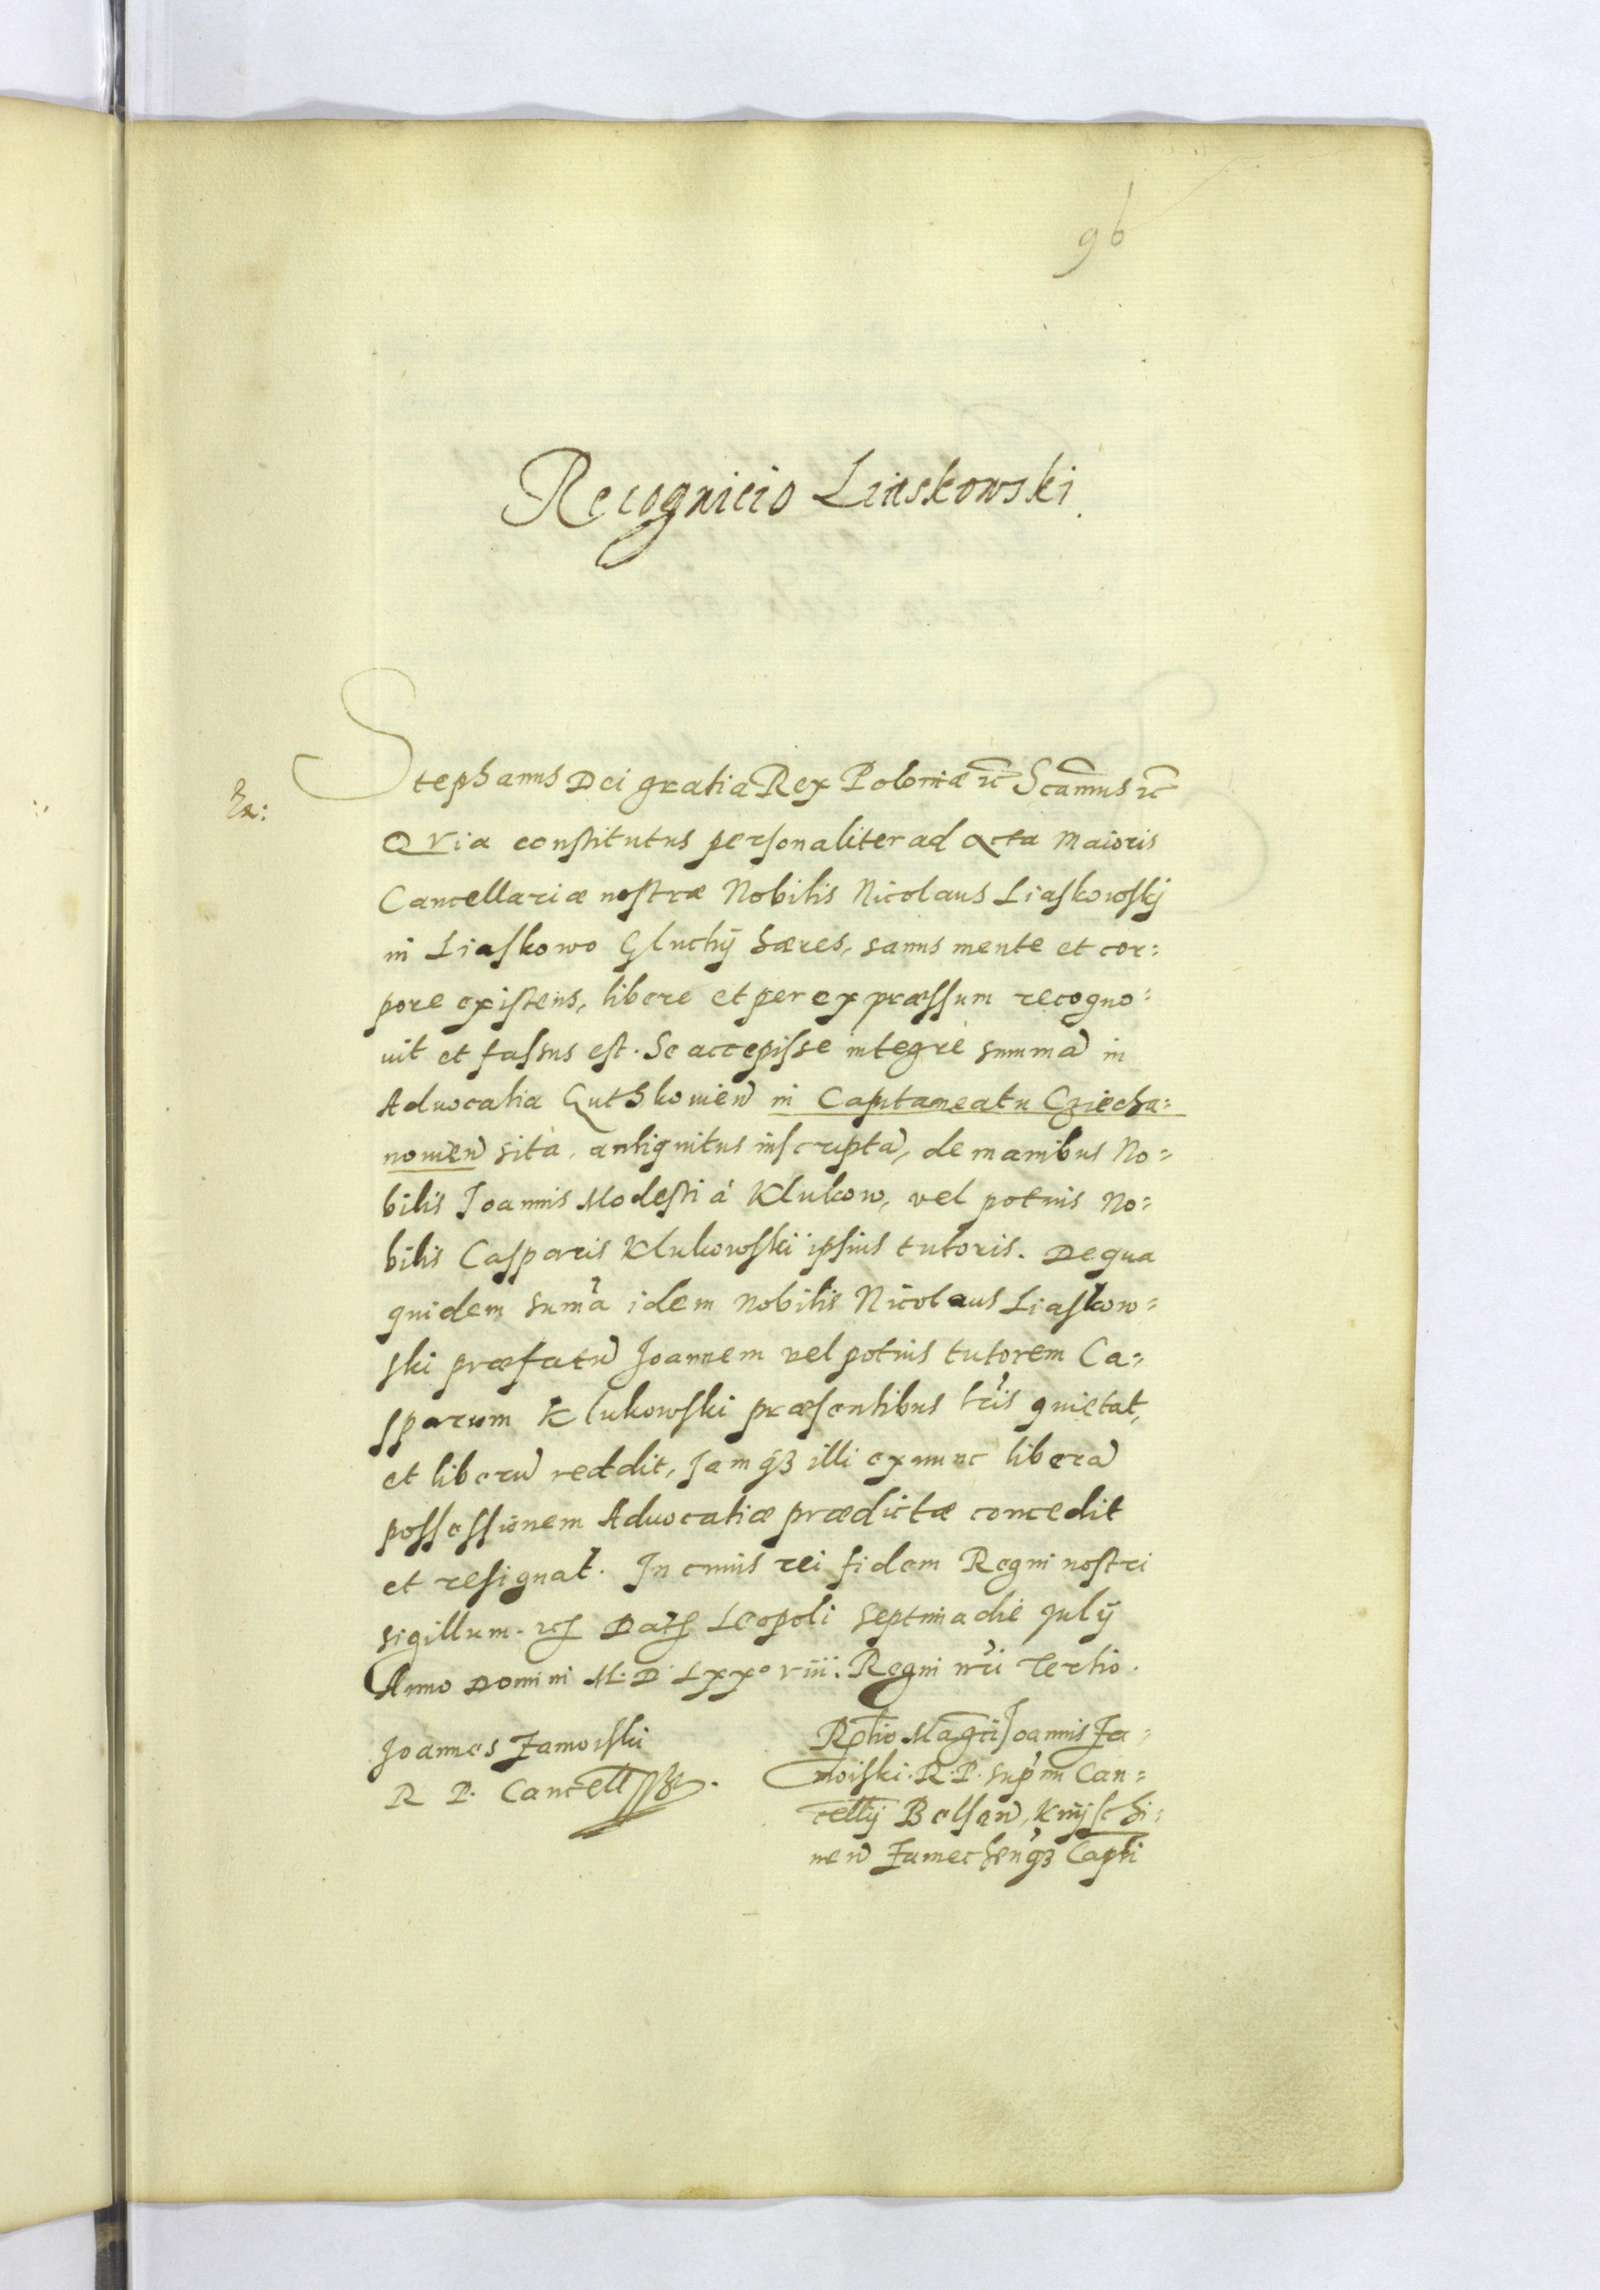 96
Recognicio Liaskowski.
Stephanus Dei gratia Rex Poloniæ etc̃ Scam̃us etc̃
QVia constitutus personaliter ad Acta Maioris
Cancellariæ nostræ Nobilis Nicolaus Liaskowskÿ
in Liaskowo Gluchÿ hæres, sanus mente et cor=
pore existens, libere et per expræssum recogno=
uit et fassus est. Se accepisse integrè summã in
Aduocatia Guthkouieñ in Capitaneatu Cziecha=
nouieñ sita, antiquitus inscriptã, de manibus No=
bilis Joannis Modesti á Klukow, vel potius No=
bilis Casparis Klukowski ipsius tutoris. De qua
quidem suma idem Nobilis Nicolaus Liaskow=
ski præfatũ Joannem vel potius tutorem Ca=
sparum Klukowski præsentibus lr̃is quietat,
et liberũ reddit, Jamqꝫ illi exnunc liberã
possessionem Aduocatiæ prædictæ concedit
et resignat. In cuius rei fidem Regni nostri
sigillum. etc Datt Leopoli septima die Julÿ
Anno Domini M. D. Lxxº viii. Regni nr̃i Tertio.
Joannes Zamoiski
R P. Cancell sst.
Rltio Magci Joannis Za=
moiski. R. P. supmi Can=
cellÿ Belseñ, Knÿschi=
neñ Zamecheñqꝫ Capti